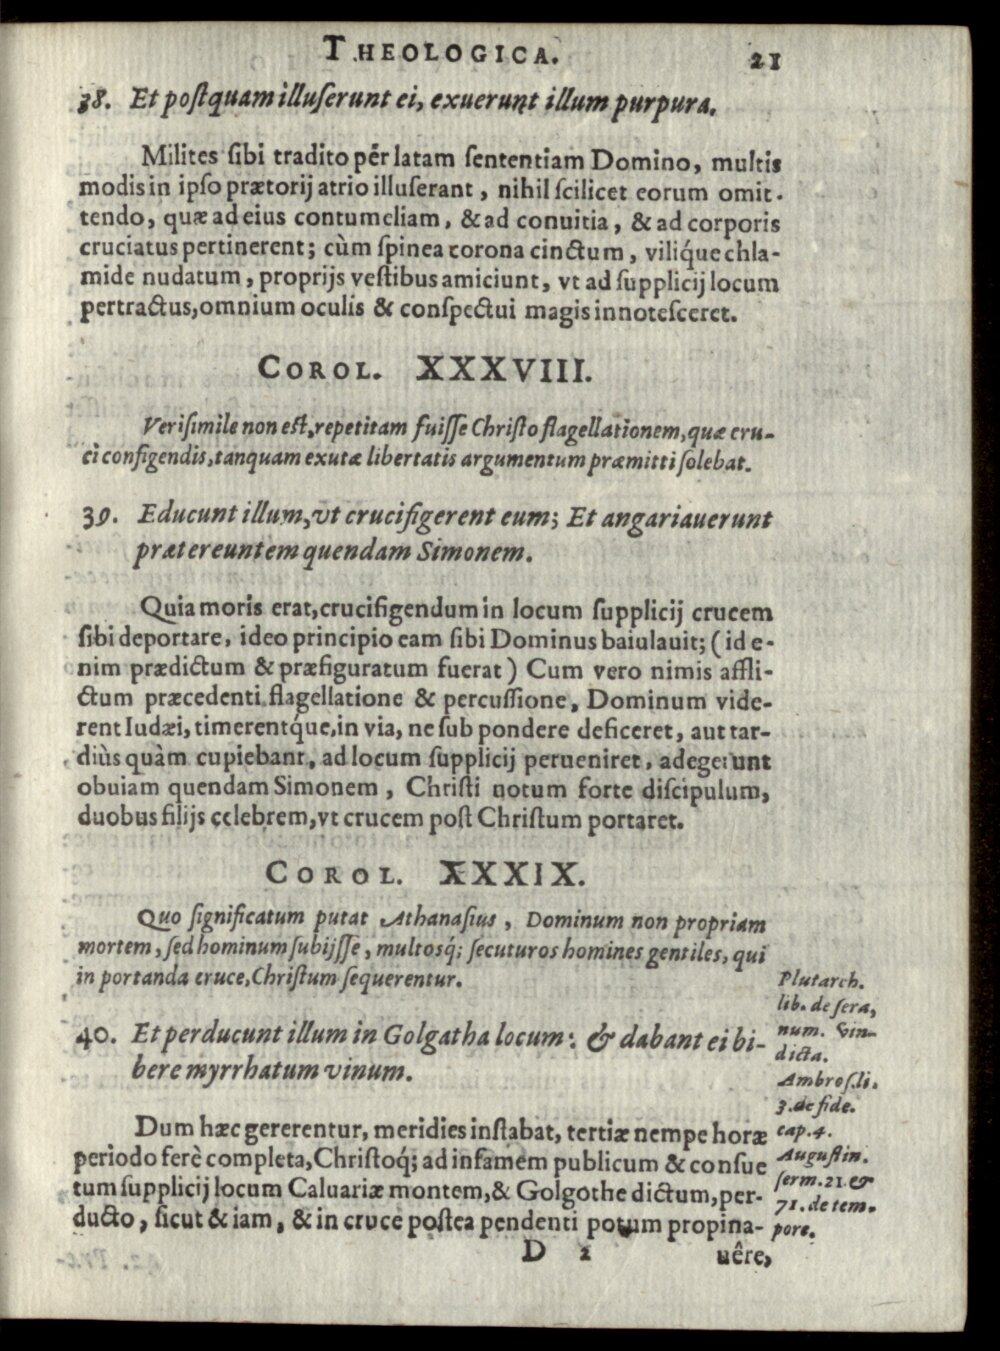 THEOLOGICA. 21
38. Et postquam illuserunt ei, exuerunt illum purpura.
Milites sibi tradito per latam sententiam Domino, multis
modis in ipso prætorij atrio illuserant, nihil scilicet eorum omit-
tendo, quæ ad eius contumeliam, & ad conuitia, & ad corporis
cruciatus pertinerent; cùm spinea corona cinctum, viliq́ue chla-
mide nudatum, proprijs vestibus amiciunt, vt ad supplicij locum
pertractus, omnium oculis & conspectui magis innotesceret.
COROL. XXXVIII.
Verisimile non est, repetitam fuisse Christo flagellationem, quæ cru-
ci configendis, tanquam exutæ libertatis argumentum præmitti solebat.
39. Educunt illum, vt crucifigerent eum; Et angariauerunt
prætereuntem quendam Simonem.
Quia moris erat, crucifigendum in locum supplicij crucem
sibi deportare, ideo principio eam sibi Dominus baiulauit; (id e-
nim prædictum & præfiguratum fuerat) Cum vero nimis affli-
ctum præcedenti flagellatione & percussione, Dominum vide-
rent Iudæi, timerentq́ue, in via, ne sub pondere deficeret, aut tar-
diùs quàm cupiebant, ad locum supplicij perueniret, adegerunt
obuiam quendam Simonem, Christi notum forte discipulum,
duobus filijs celebrem, vt crucem post Christum portaret.
COROL. XXXIX.
Quo significatum putat Athanasius, Dominum non propriam
mortem, sed hominum subijsse, multosq́; secuturos homines gentiles, qui
in portanda cruce, Christum sequerentur.
40. Et perducunt illum in Golgatha locum: & dabant ei bi-
bere myrrhatum vinum.
Dum hæc gererentur, meridies instabat, tertiæ nempe horæ
periodo ferè completa, Christoq́; ad infamem publicum & consue
tum supplicij locum Caluariæ montem, & Golgothe dictum, per-
ducto, sicut & iam, & in cruce postea pendenti potum propina-
D 2 uêre,
Plutarch.
lib. de sera,
num. Vin-
dicta.
Ambros. li.
3. de fide.
cap. 4.
Augustin.
serm. 21. &
71. de tem-
pore.